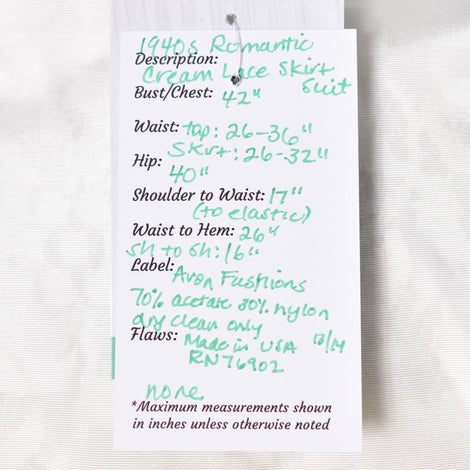 1940s Romantic
Description:
Cream Lace Skirt
Suit
Bust/Chest: 42"
Waist: top: 26-36"
Skirt: 26-32"
Hip: 40"
Shoulder to Waist: 17"
(to elastic)
Waist to Hem: 26"
Sh to Sh: 16"
Label: Avon Fashions
70% acetate 30% nylon
dry clean only
Flaws: Made in USA 13/14
RN76902
none
*Maximum measurements shown
in inches unless otherwise noted